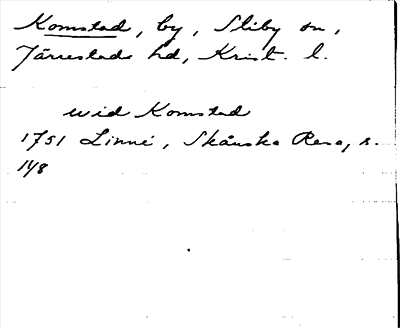 Komstad, by, Sliby sn,
Järrestads hd, Krist. l.
wid Komstad
1751 Linné, Skånska Resa, s.
148